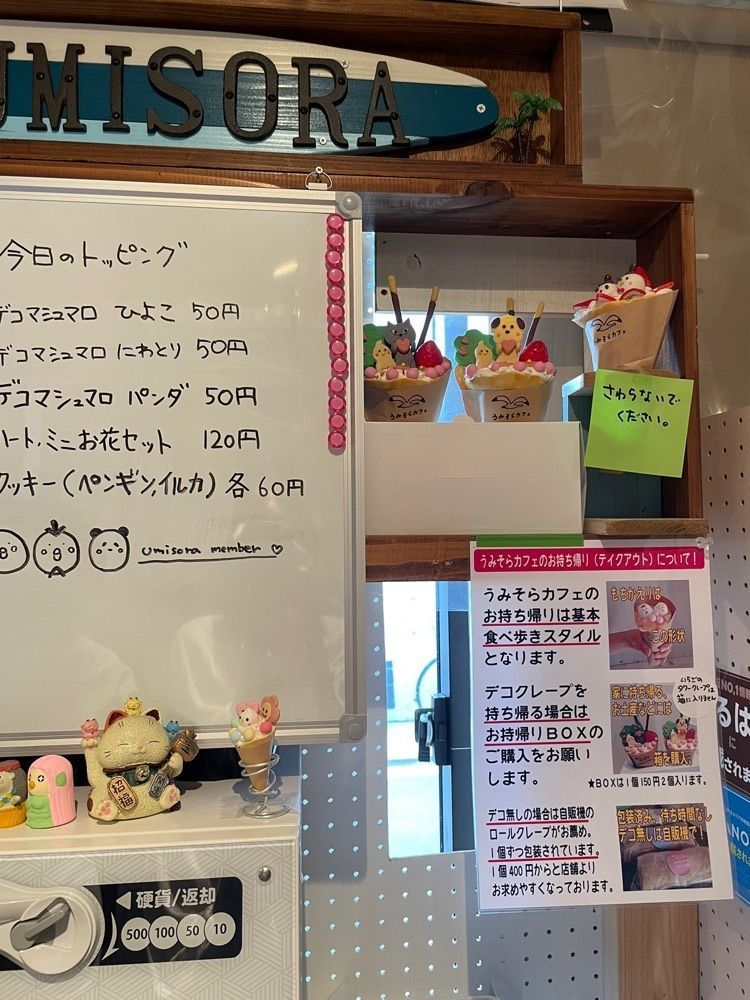 UMISORA
今日のトッピング
デコマシュマロ ひよこ 50円
デコマシュマロ にわとり 50円
デコマシュマロ パンダ 50円
ハート、ミニお花セット 120円
クッキー(ペンギン、イルカ)各60円
umisora member♡
うみそらカフェ
うみそらカフェ
うみそらカフェ
さわらないで
ください。
うみそらカフェのお持ち帰り(テイクアウト)について!
うみそらカフェの
お持ち帰りは基本
食べ歩きスタイル
となります。
もちかえりは
この形状
デコクレープを
持ち帰る場合は
お持帰りBOXの
ご購入をお願い
します。
家に持ち帰る、
お土産などには
箱を購入。
いちごの
タワークレープは
箱に入りません
★BOXは1個150円2個入ります。
デコ無しの場合は自販機の
ロールクレープがお薦め。
1個ずつ包装されています。
1個400円からと店舗より
お求めやすくなっております。
包装済み、待ち時間なし
デコ無しは自販機で!
招福
◀硬貨/返却
500 100 50 10
NO.1
るは
に